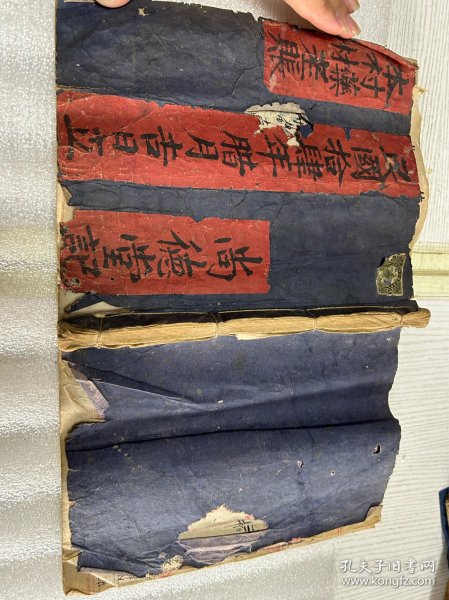 本村藥材賬
民國拾肆年腊月吉日立
尚德堂記
孔夫子旧书网
www.kongfz.com